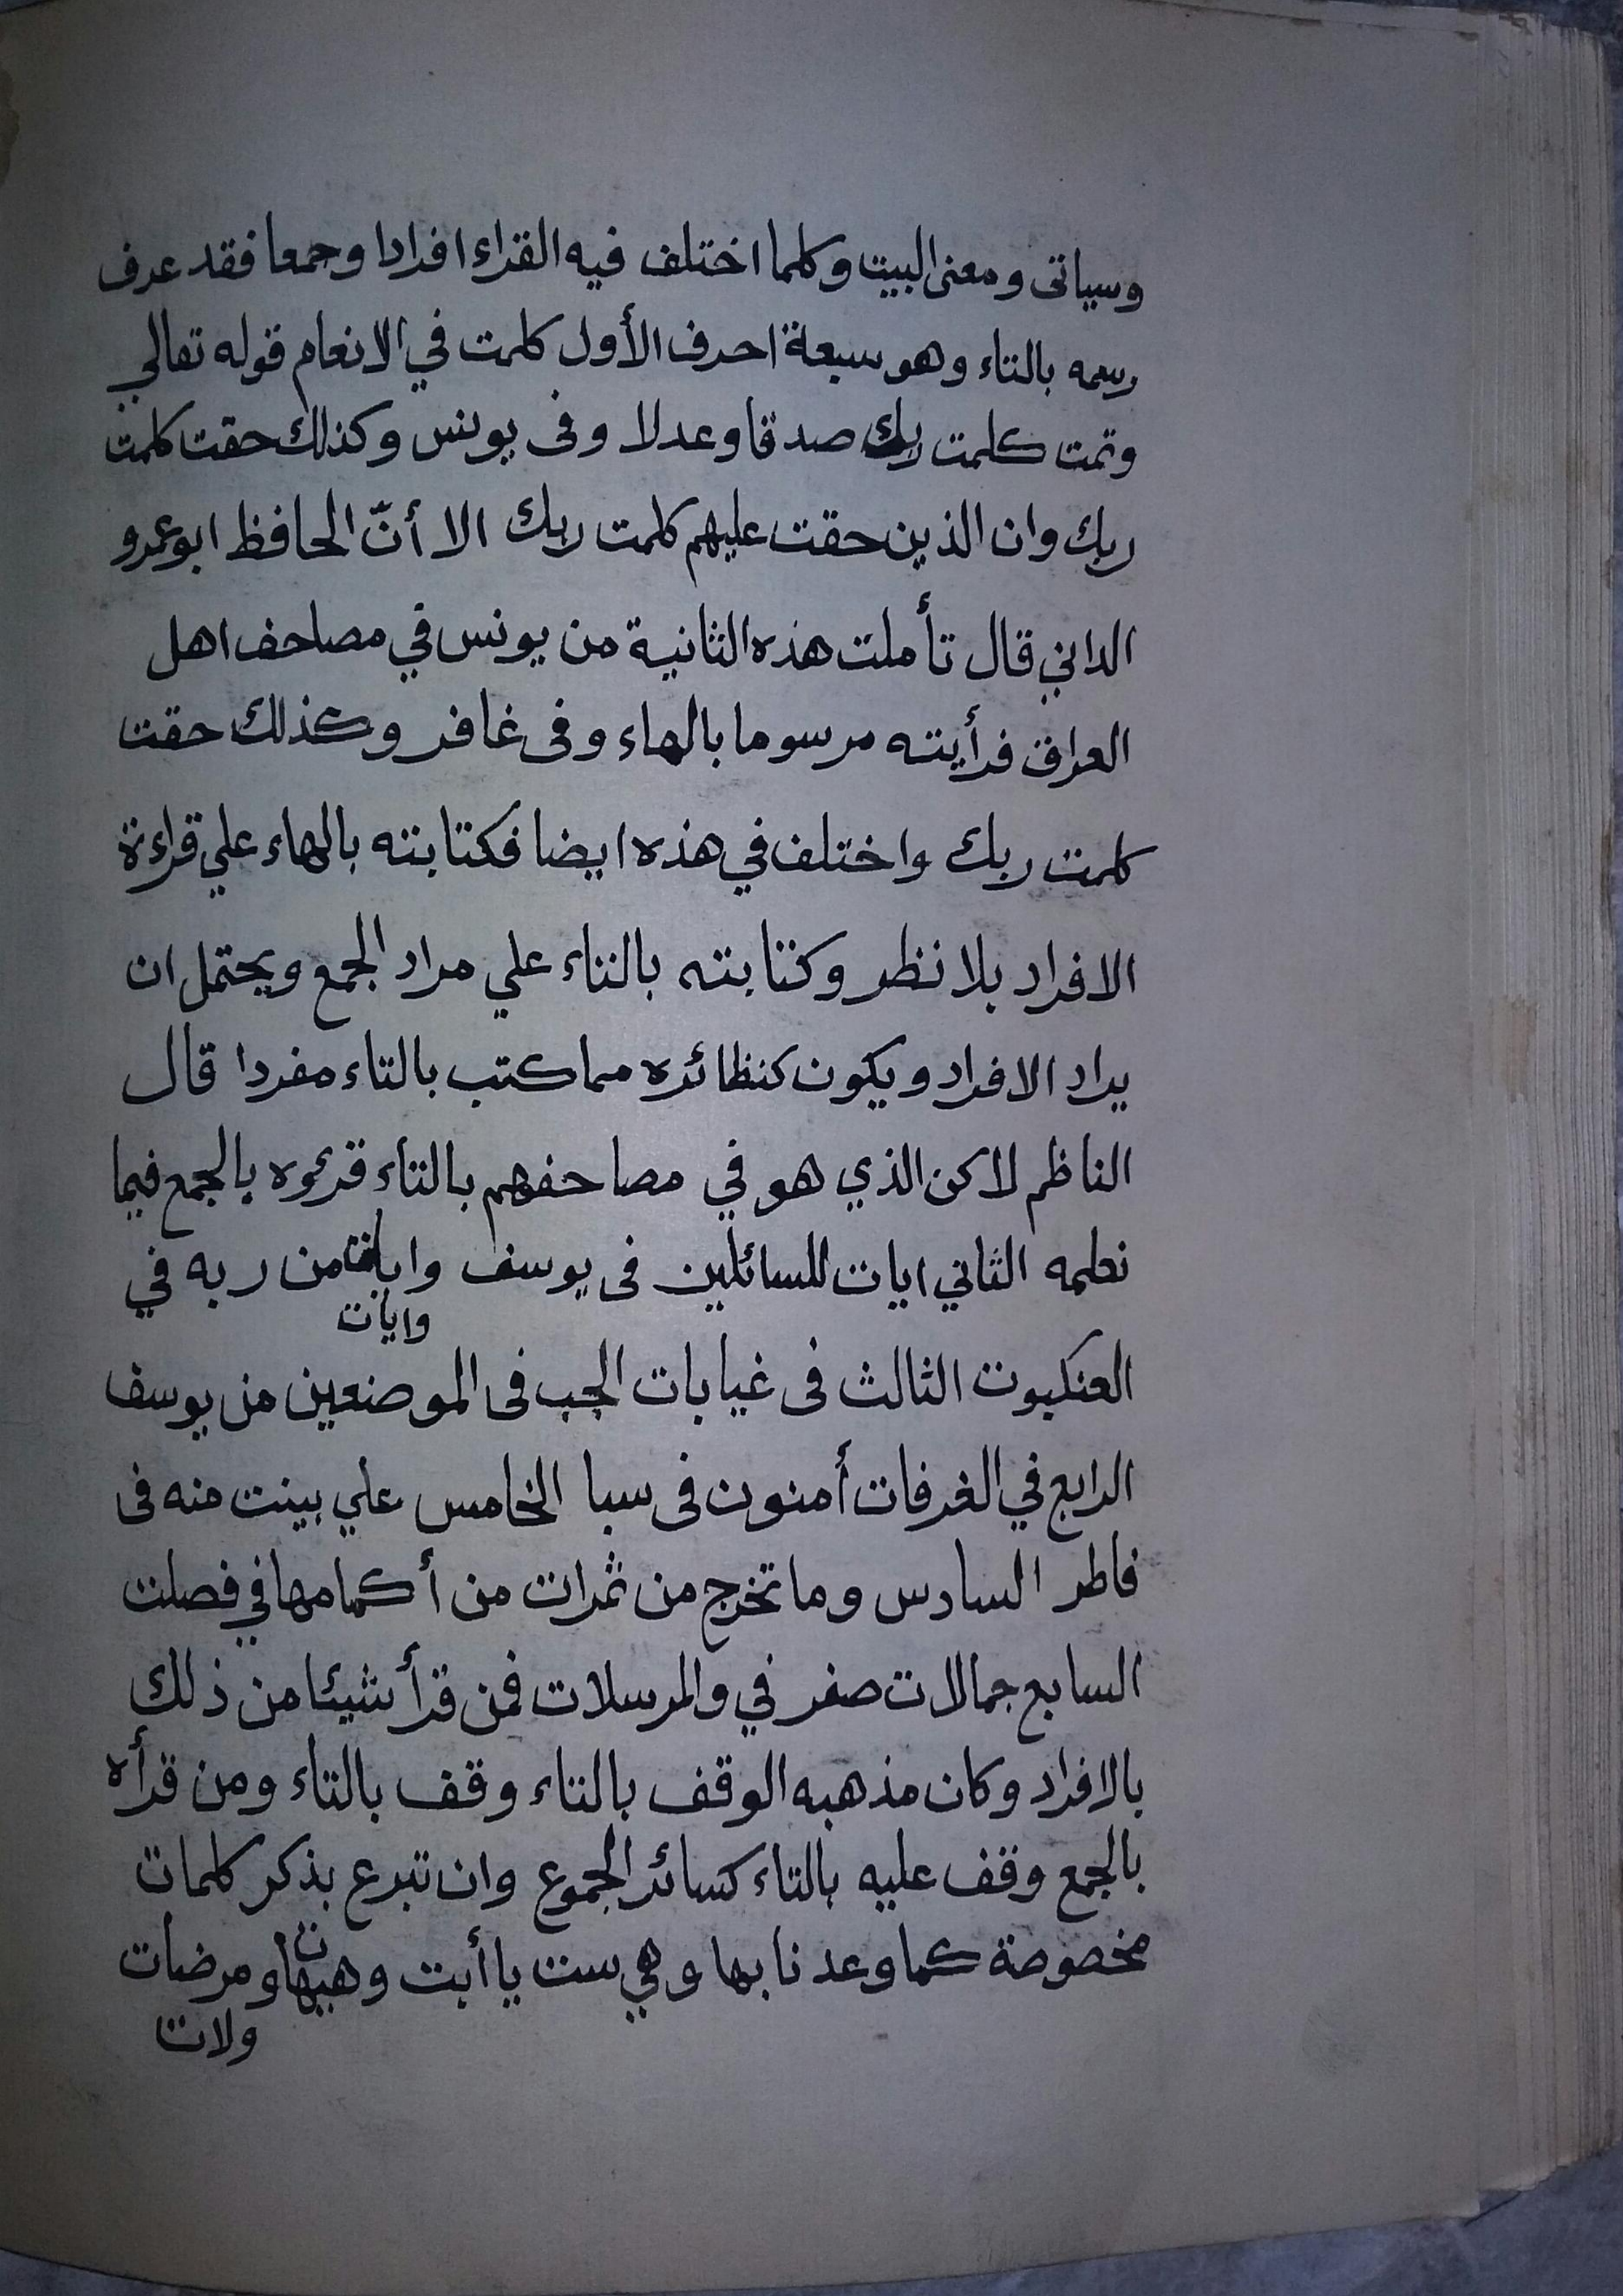 وسياتى ومعنى البيت وكلما اختلف فيه القراء افرادا وجمعا فقد عرف
رسمه بالتاء وهو سبعة احرف الأول كلمت في الانعام قوله تعالي
وتمت كلمت ربك صدقا وعدلا وفى يونس وكذلك حقت كلمت
ربك وان الذين حقت عليهم كلمت ربك الا أنّ الحافظ ابو عمرو
الداني قال تأملت هذه الثانية من يونس في مصاحف اهل
العراق فرأيته مرسوما بالهاء وفى غافر وكذلك حقت
كلمت ربك واختلف في هذه ايضا فكتابته بالهاء علي قراءة
الافراد بلا نظر وكتابته بالتاء علي مراد الجمع ويحتمل ان
يراد الافراد ويكون كنظائره مما كتب بالتاء مفردا قال
الناظم لاكن الذي هو في مصاحفهم بالتاء قرءوه بالجمع فيما
نعلمه الثاني ايات للسائلين فى يوسف وايات من ربه في
وايات
العنكبوت الثالث فى غيابات الجب فى الموضعين من يوسف
الرابع في الغرفات أمنون فى سبا الخامس علي بينت منه فى
فاطر السادس وما تخرج من ثمرات من أكمامها في فصلت
السابع جمالات صفر في والمرسلات فمن قرأ شيئا من ذلك
بالافراد وكان مذهبه الوقف بالتاء وقف بالتاء ومن قرأه
بالجمع وقف عليه بالتاء كسائر الجموع وان تبرع بذكر كلمات
مخصوصة كما وعدنا بها وهي ست يا أبت وهيهات ومرضات
ولات